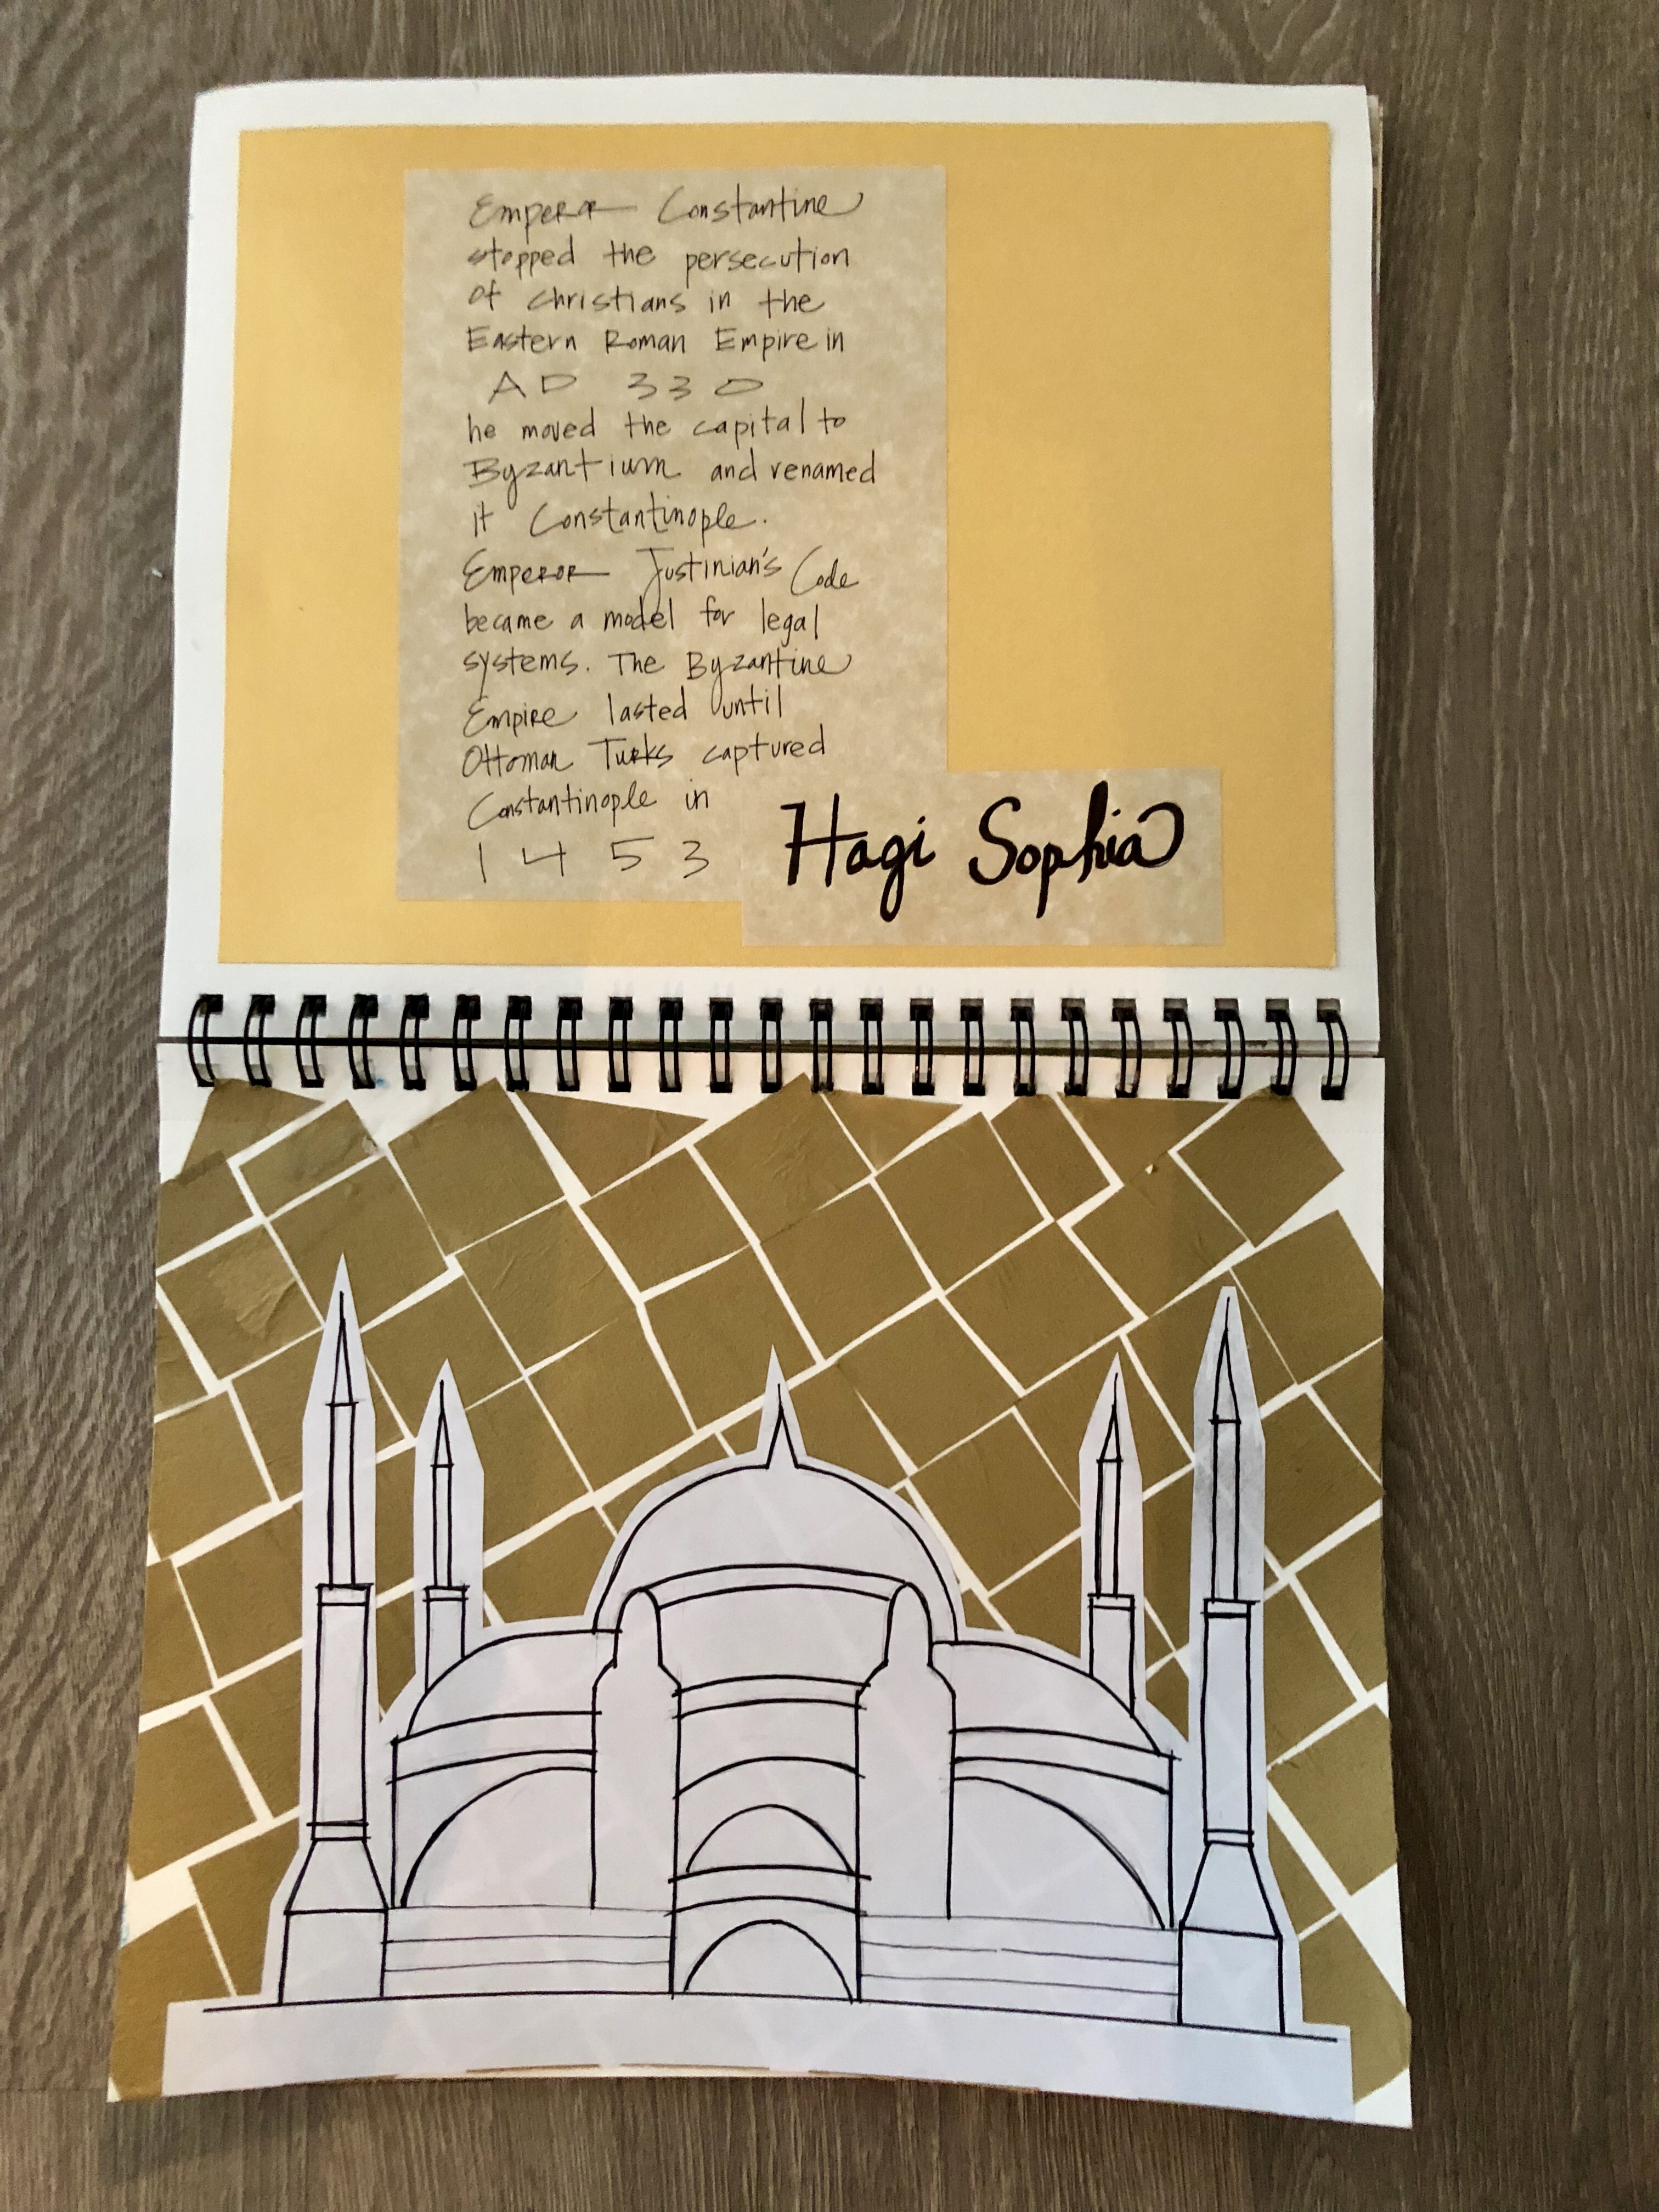 Emperor Constantine
stopped the persecution
of christians in the
Eastern Roman Empire in
AD 330
he moved the capital to
Byzantium and renamed
it Constantinople.
Emperor Justinian's Code
became a model for legal
systems. The Byzantine
Empire lasted until
Ottoman Turks captured
Constantinople in
1453
Hagi Sophia